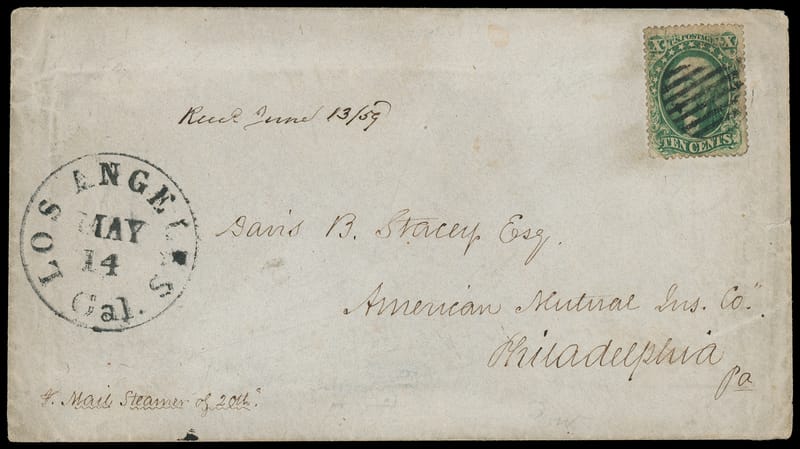 X U.S. POSTAGE X
TEN CENTS
Recd June 13/59
LOS ANGELES
MAY
14
Cal.
Davis B. Stacey Esq.
American Mutual Ins. Co."
Philadelphia
Pa
Mail Steamer of 20th"